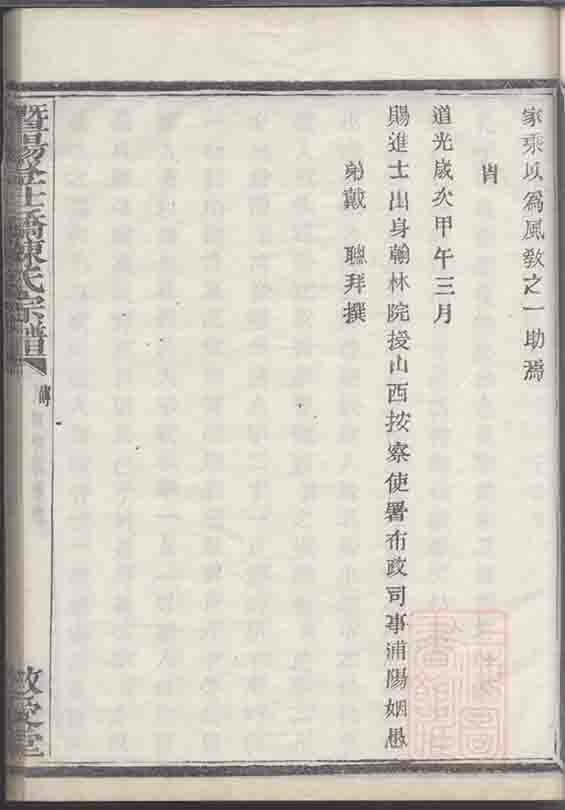 家乘以為風教之一助焉
旹
道光歲次甲午三月
賜進士出身翰林院授山西按察使署布政司事浦陽姻愚
弟戴　聰拜撰
暨陽孝士橋陳氏宗譜
傳
敬愛堂